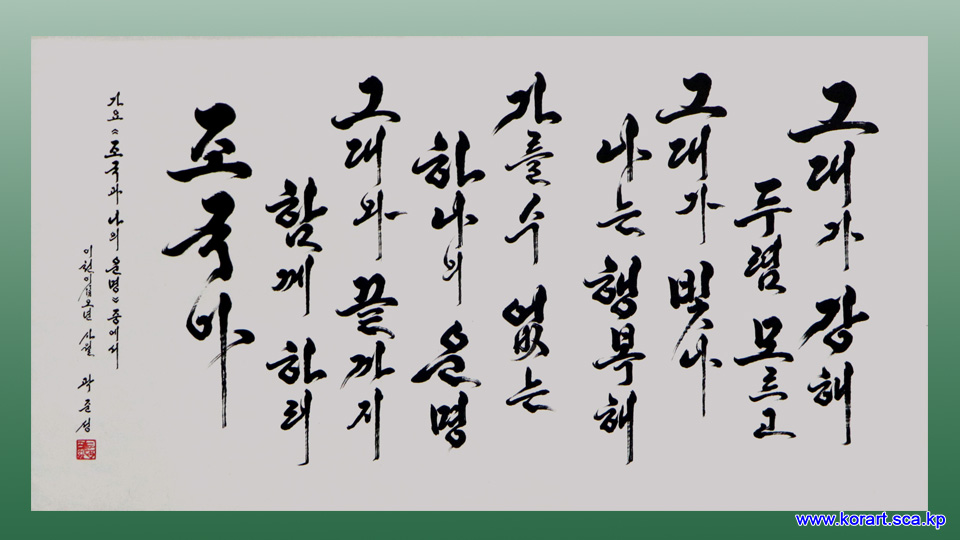 그대가 강해
두렴 모르고
그대가 빛나
나는 행복해
가를수 없는
하나의 운명
그대와 끝까지
함께 하리
조국아
가요《조국과 나의 운명》중에서
이천이십오년 사월 곽준성
www.korart.sca.kp